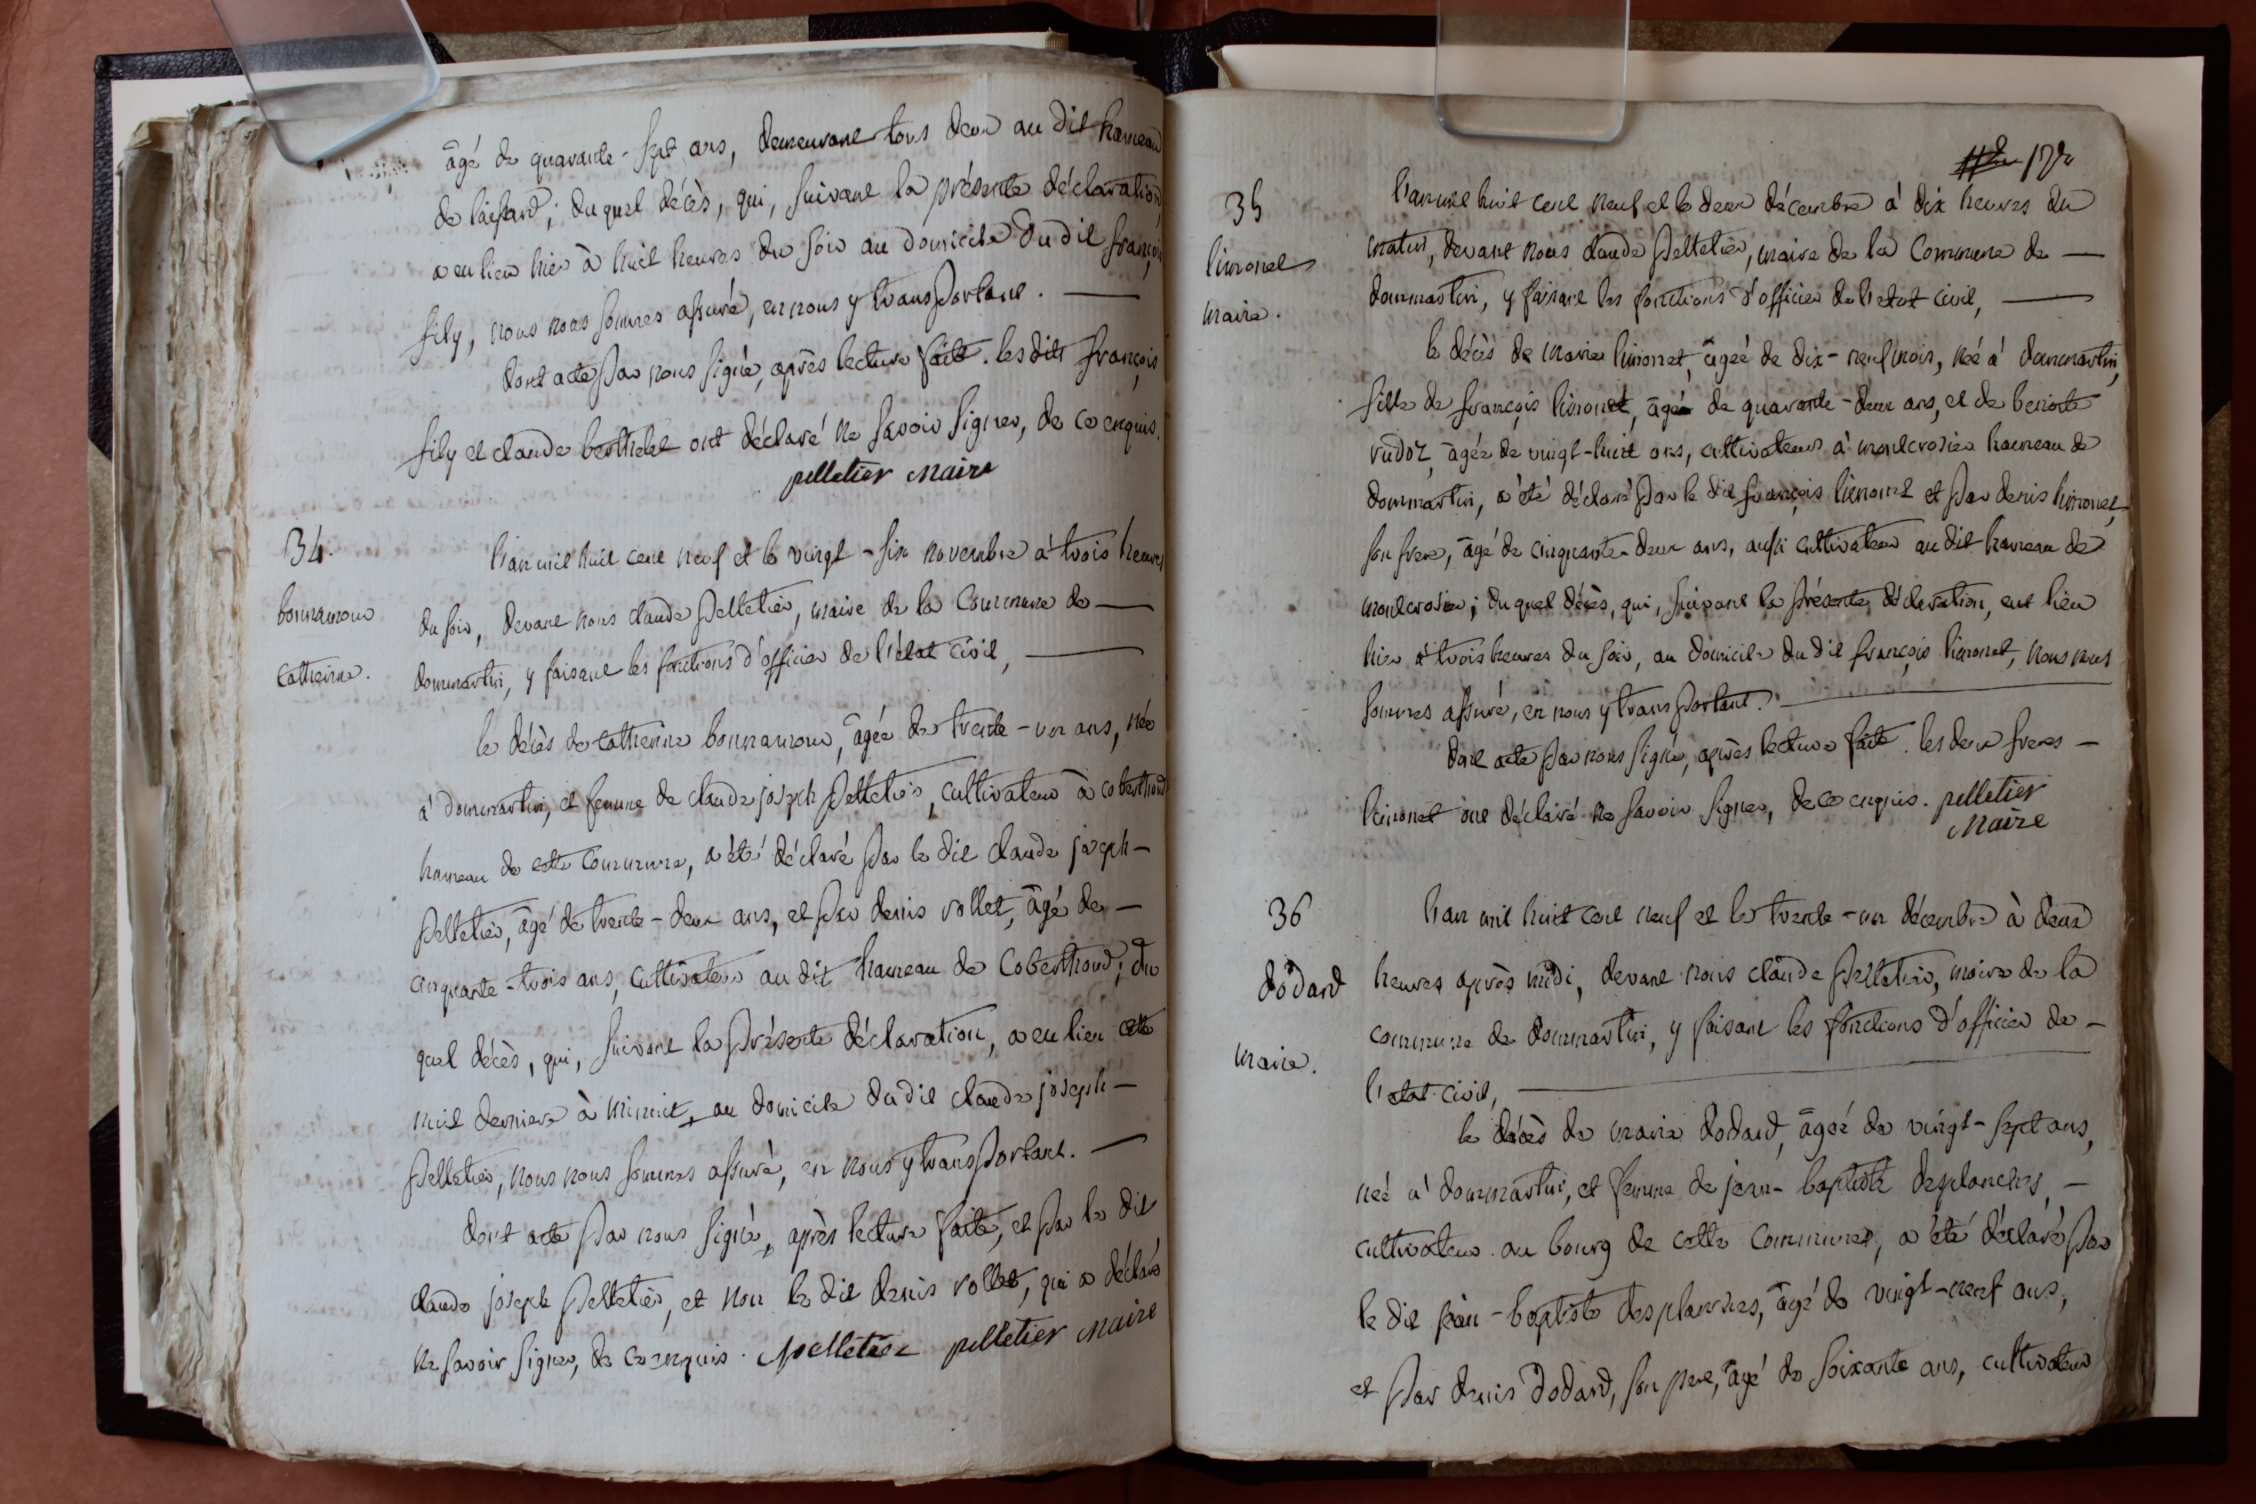 âgé de quarante-sept ans, demeurant tous deux au dit hameau
de ; du quel décès, qui, suivant la présente déclaration,
a eu lieu hier à huit heures du soir au domicile du dit françois
fily, nous nous sommes assuré, en nous y transportant. —
dont acte par nous signé, après lecture faite. les dits françois
fily et claude berthelet ont déclaré ne savoir signer, de ce enquis.
pelletier Maire
34.
bonnamour
Catherine.
l'an mil huit cent neuf et le vingt-six novembre à trois heures
du soir, devant nous claude pelletier, maire de la Commune de —
dommartin, y faisant les fonctions d'officier de l'état civil, —
le décès de catherine bonnamour, âgée de trente-un ans, née
à dommartin, et femme de claude joseph pelletier, cultivateur à coberthoud
hameau de cette commune, a été déclaré par le dit claude joseph —
pelletier, âgé de trente-deux ans, et par denis vollet, âgé de —
cinquante-trois ans, cultivateur au dit hameau de Coberthoud; du
quel décès, qui, suivant la présente déclaration, a eu lieu cette
nuit derniere à minuit, au domicile du dit claude joseph —
pelletier, nous nous sommes assuré, en nous y transportant. —
dont acte par nous signé, après lecture faite, et par le dit
claude joseph pelletier, et non le dit denis vollet, qui a déclaré
ne savoir signer, de ce enquis. pelletier pelletier Maire
35
limonet
marie.
l'an mil huit cent neuf et le deux décembre à dix heures du
matin, devant nous claude pelletier, maire de la Commune de —
dommartin, y faisant les fonctions d'officier de l'etat civil, —
le décès de marie limonet, âgée de dix-neuf mois, née à dommartin,
fille de françois limonet, âgé de quarante-deux ans, et de benoite
rudoz, âgée de vingt-huit ans, cultivateurs à montcrosier hameau de
dommartin, a été déclaré par le dit françois limonet et par denis limonet,
son frere, âgé de cinquante-deux ans, aussi cultivateur au dit hameau de
montcrosier; du quel décès, qui, suivant la présente déclaration, eut lieu
hier à trois heures du soir, au domicile du dit françois limonet, nous nous
sommes assuré, en nous y transportant. —
dont acte par nous signé, après lecture faite. les deux freres —
limonet ont déclaré ne savoir signer, de ce enquis. pelletier
Maire
36
dodard
marie.
l'an mil huit cent neuf et le trente-un décembre à deux
heures après midi, devant nous claude pelletier, maire de la
commune de dommartin, y faisant les fonctions d'officier de —
l'etat civil, —
le décès de marie dodard, âgée de vingt-sept ans,
née à dommartin, et femme de jean-baptiste desplanches, —
cultivateur au bourg de cette commune, a été déclaré par
le dit jean-baptiste desplanches, âgé de vingt-neuf ans,
et par denis dodard, son pere, âgé de soixante ans, cultivateur